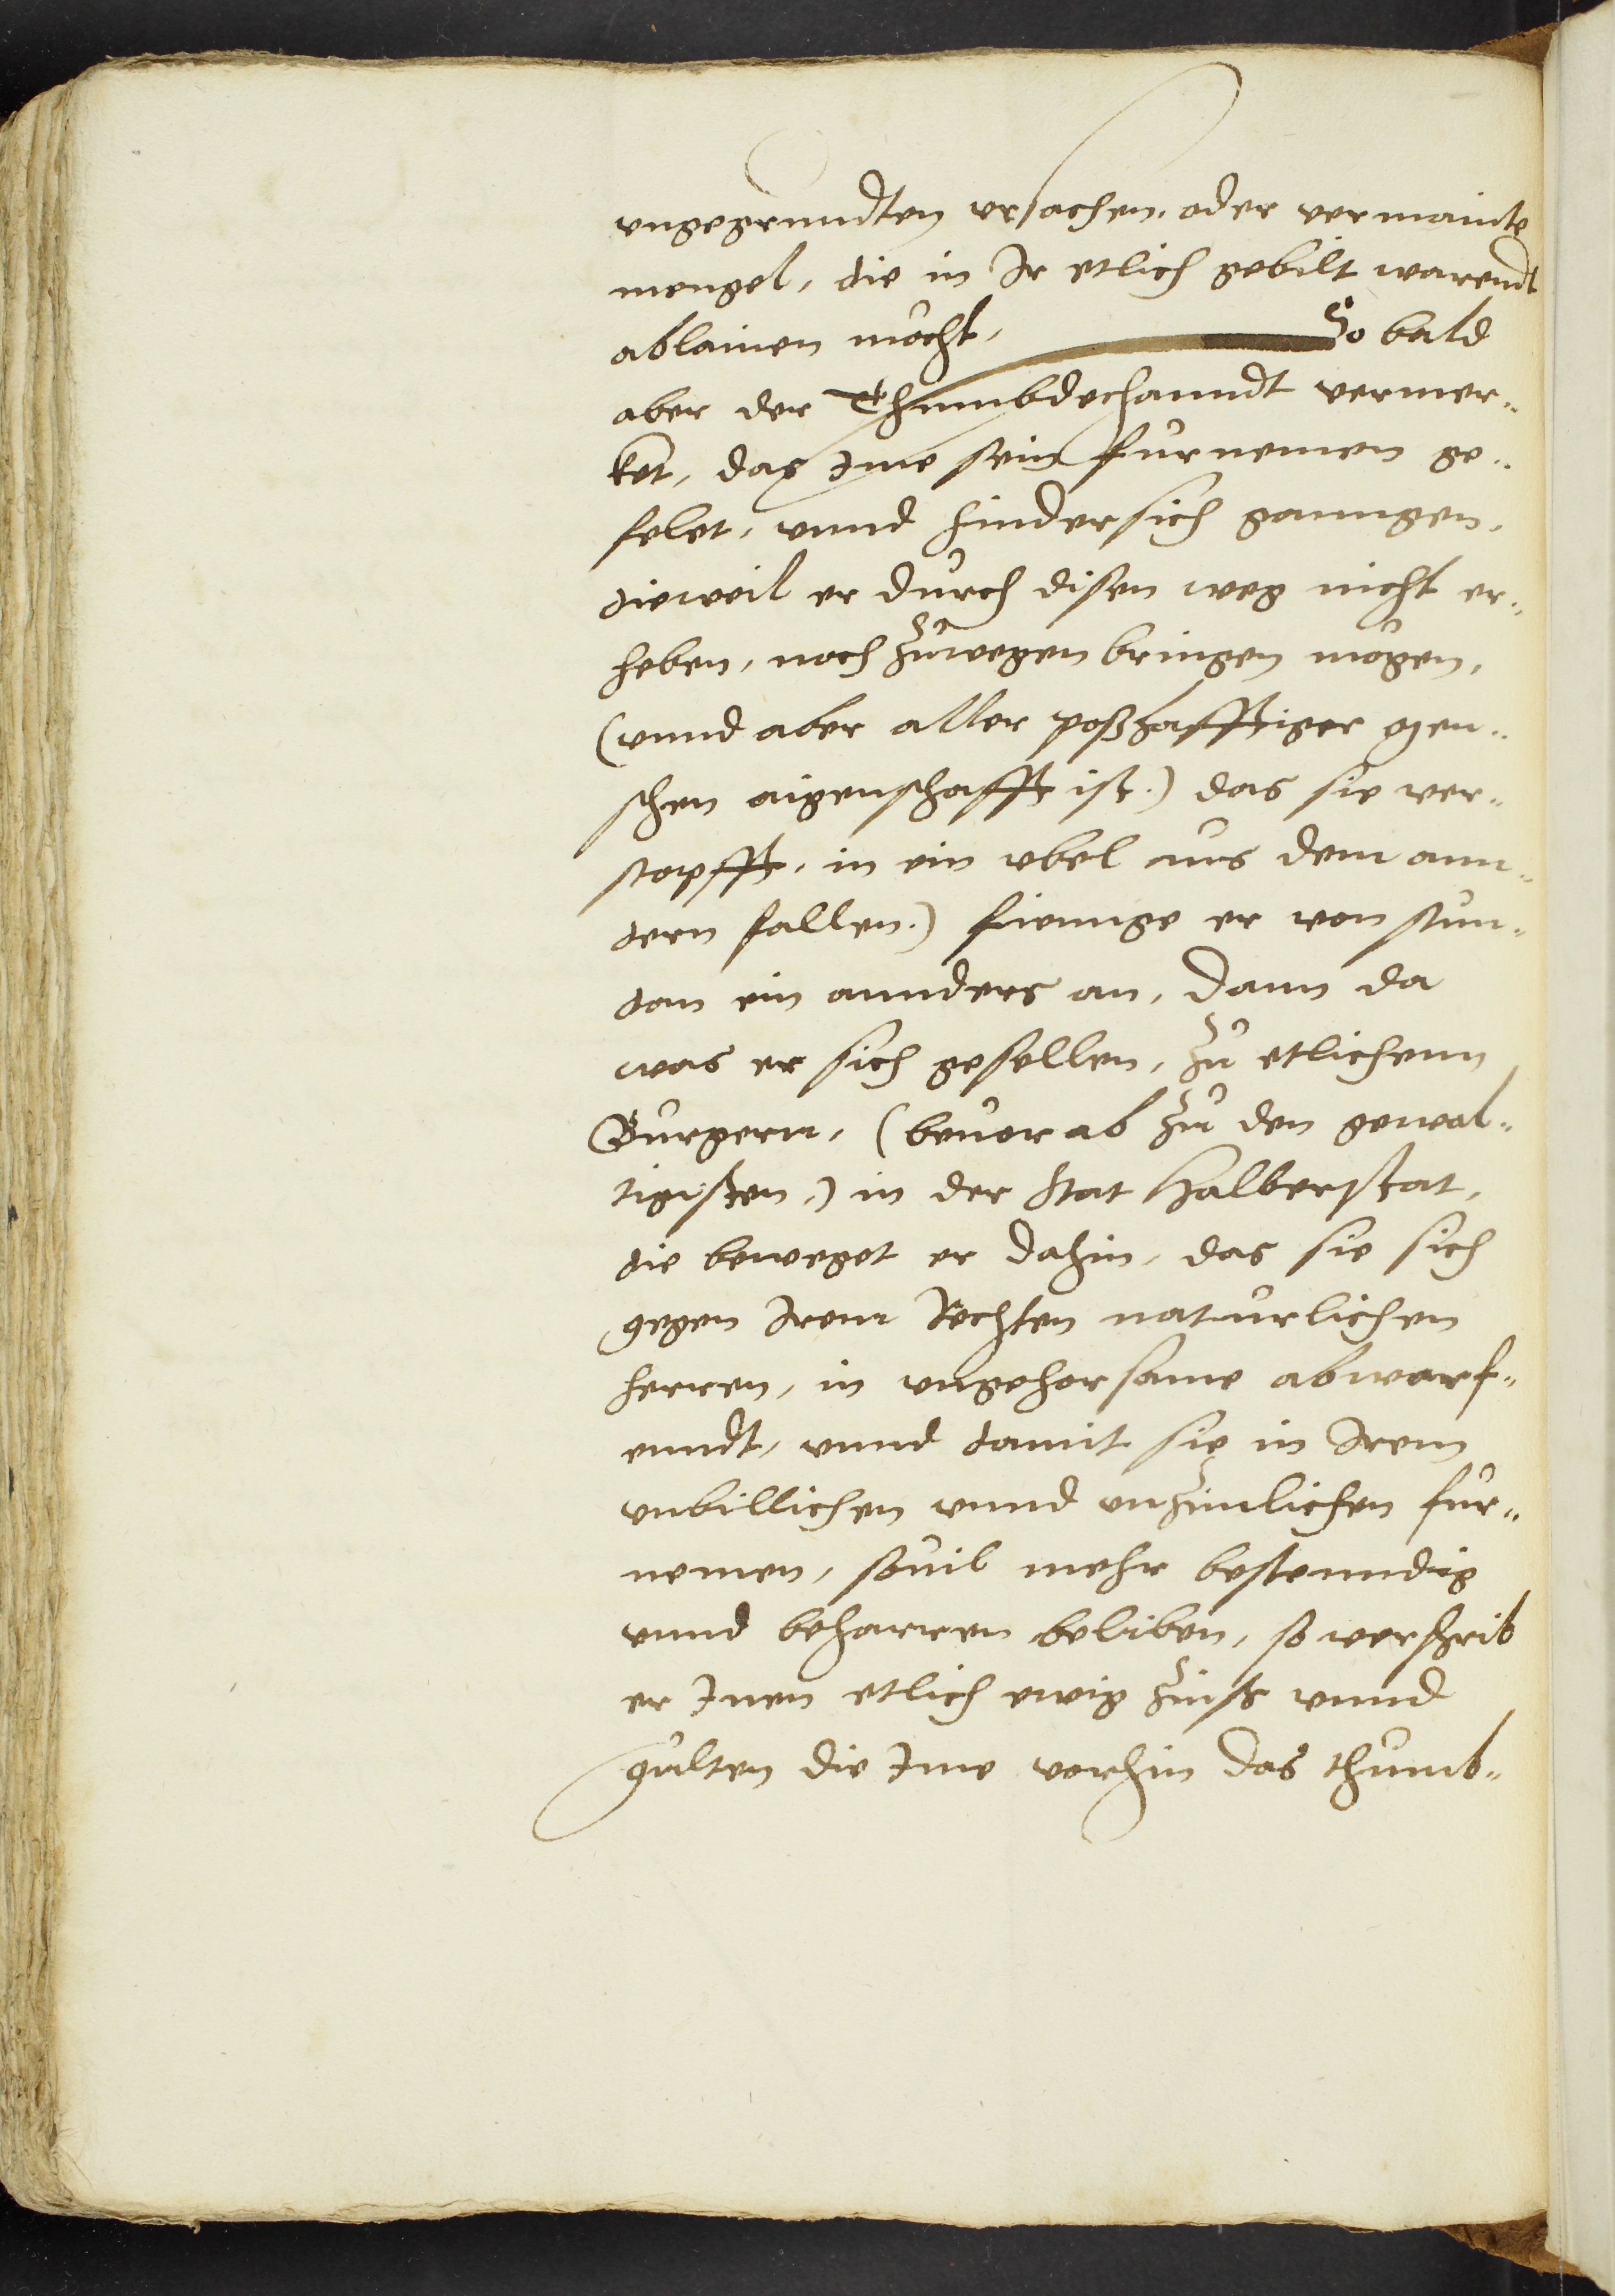 vngegrundten vrsachen, oder vermainte
mengel, die in Ir etlich gebilt warendt
ablainen mocht, So bald
aber der Thumbdechanndt vermer„
ket, das Ime sein furnemen ge„
felet, vnnd hindersich ganngen,
dieweil er durch disen weg nicht er„
heben, noch zuwegen bringen mögen,
(vnnd aber aller poßhafftiger men„
schen aigenschafft ist.) das sie ver„
stopfft, in ein vbel aus dem ann„
dern fallen.) fienge er von stun„
dan ein annders an, dann da
was er sich gesellen, zu etlichenn
Burgern, (beuorab zu den gewal„
tigisten,) in der Stat Halberstat,
die beweget er dahin, das sie sich
gegen Irem Rechten naturlichen
herren, in vngehorsame abwarf„
enndt, vnnd damit sie in Irem
vnbillichen vnnd vnzimlichen fur„
nemen, souil mehr bestenndig
vnnd beharren beliben, so verschrib
er Inen etlich ewig zinß vnnd
gulten die Ime vorhin das thumb„